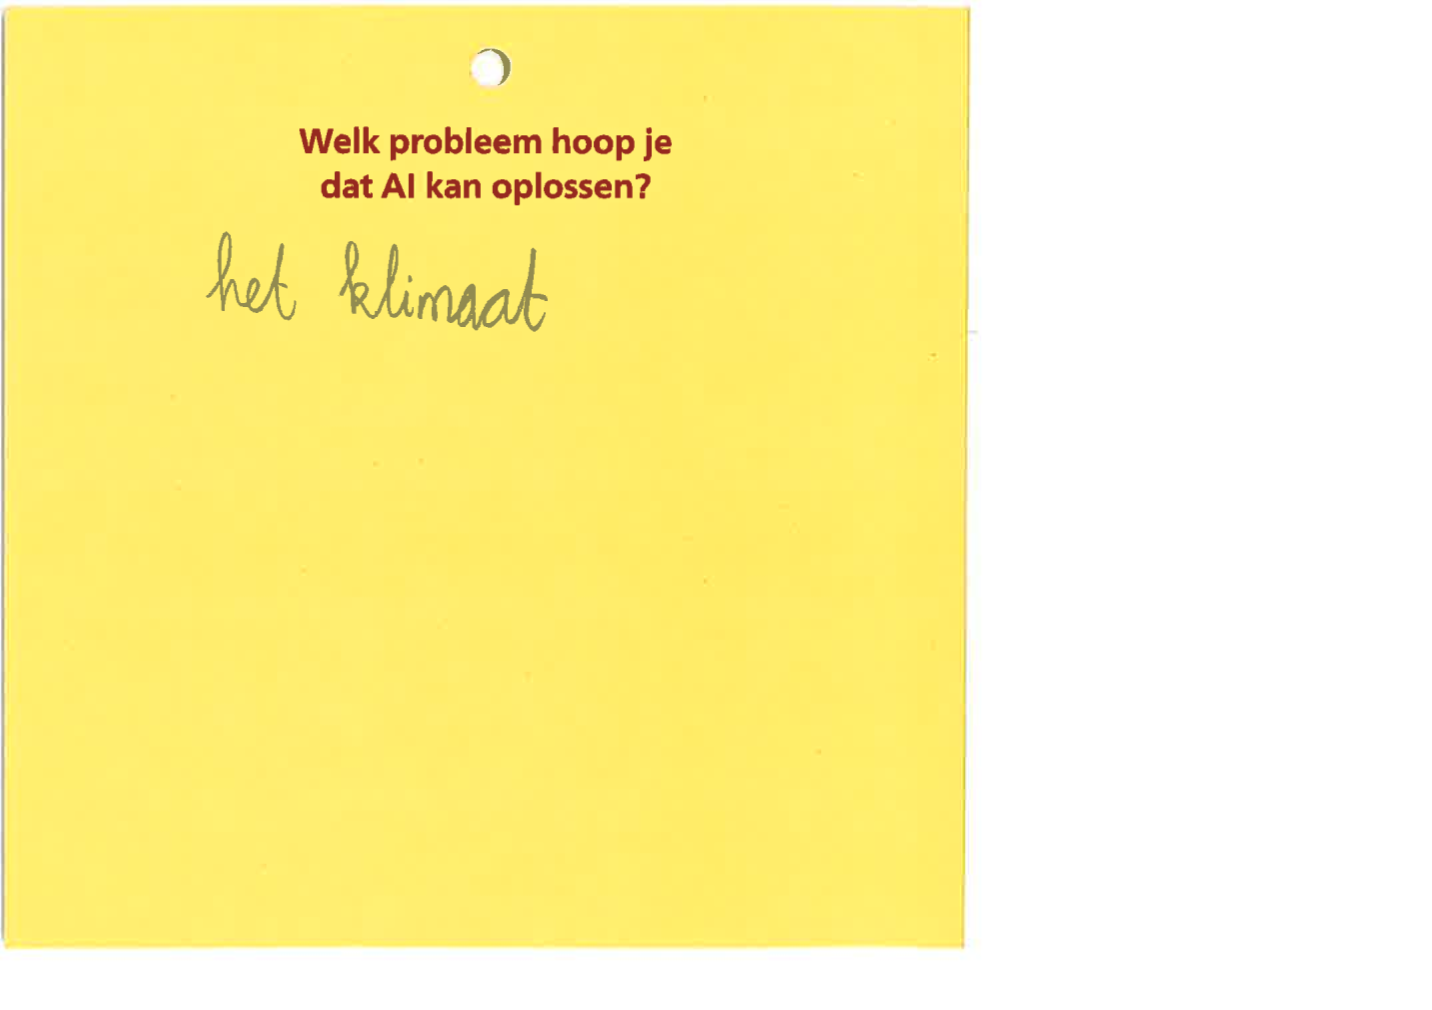 Welk probleem hoop je
dat AI kan oplossen?
het klimaat